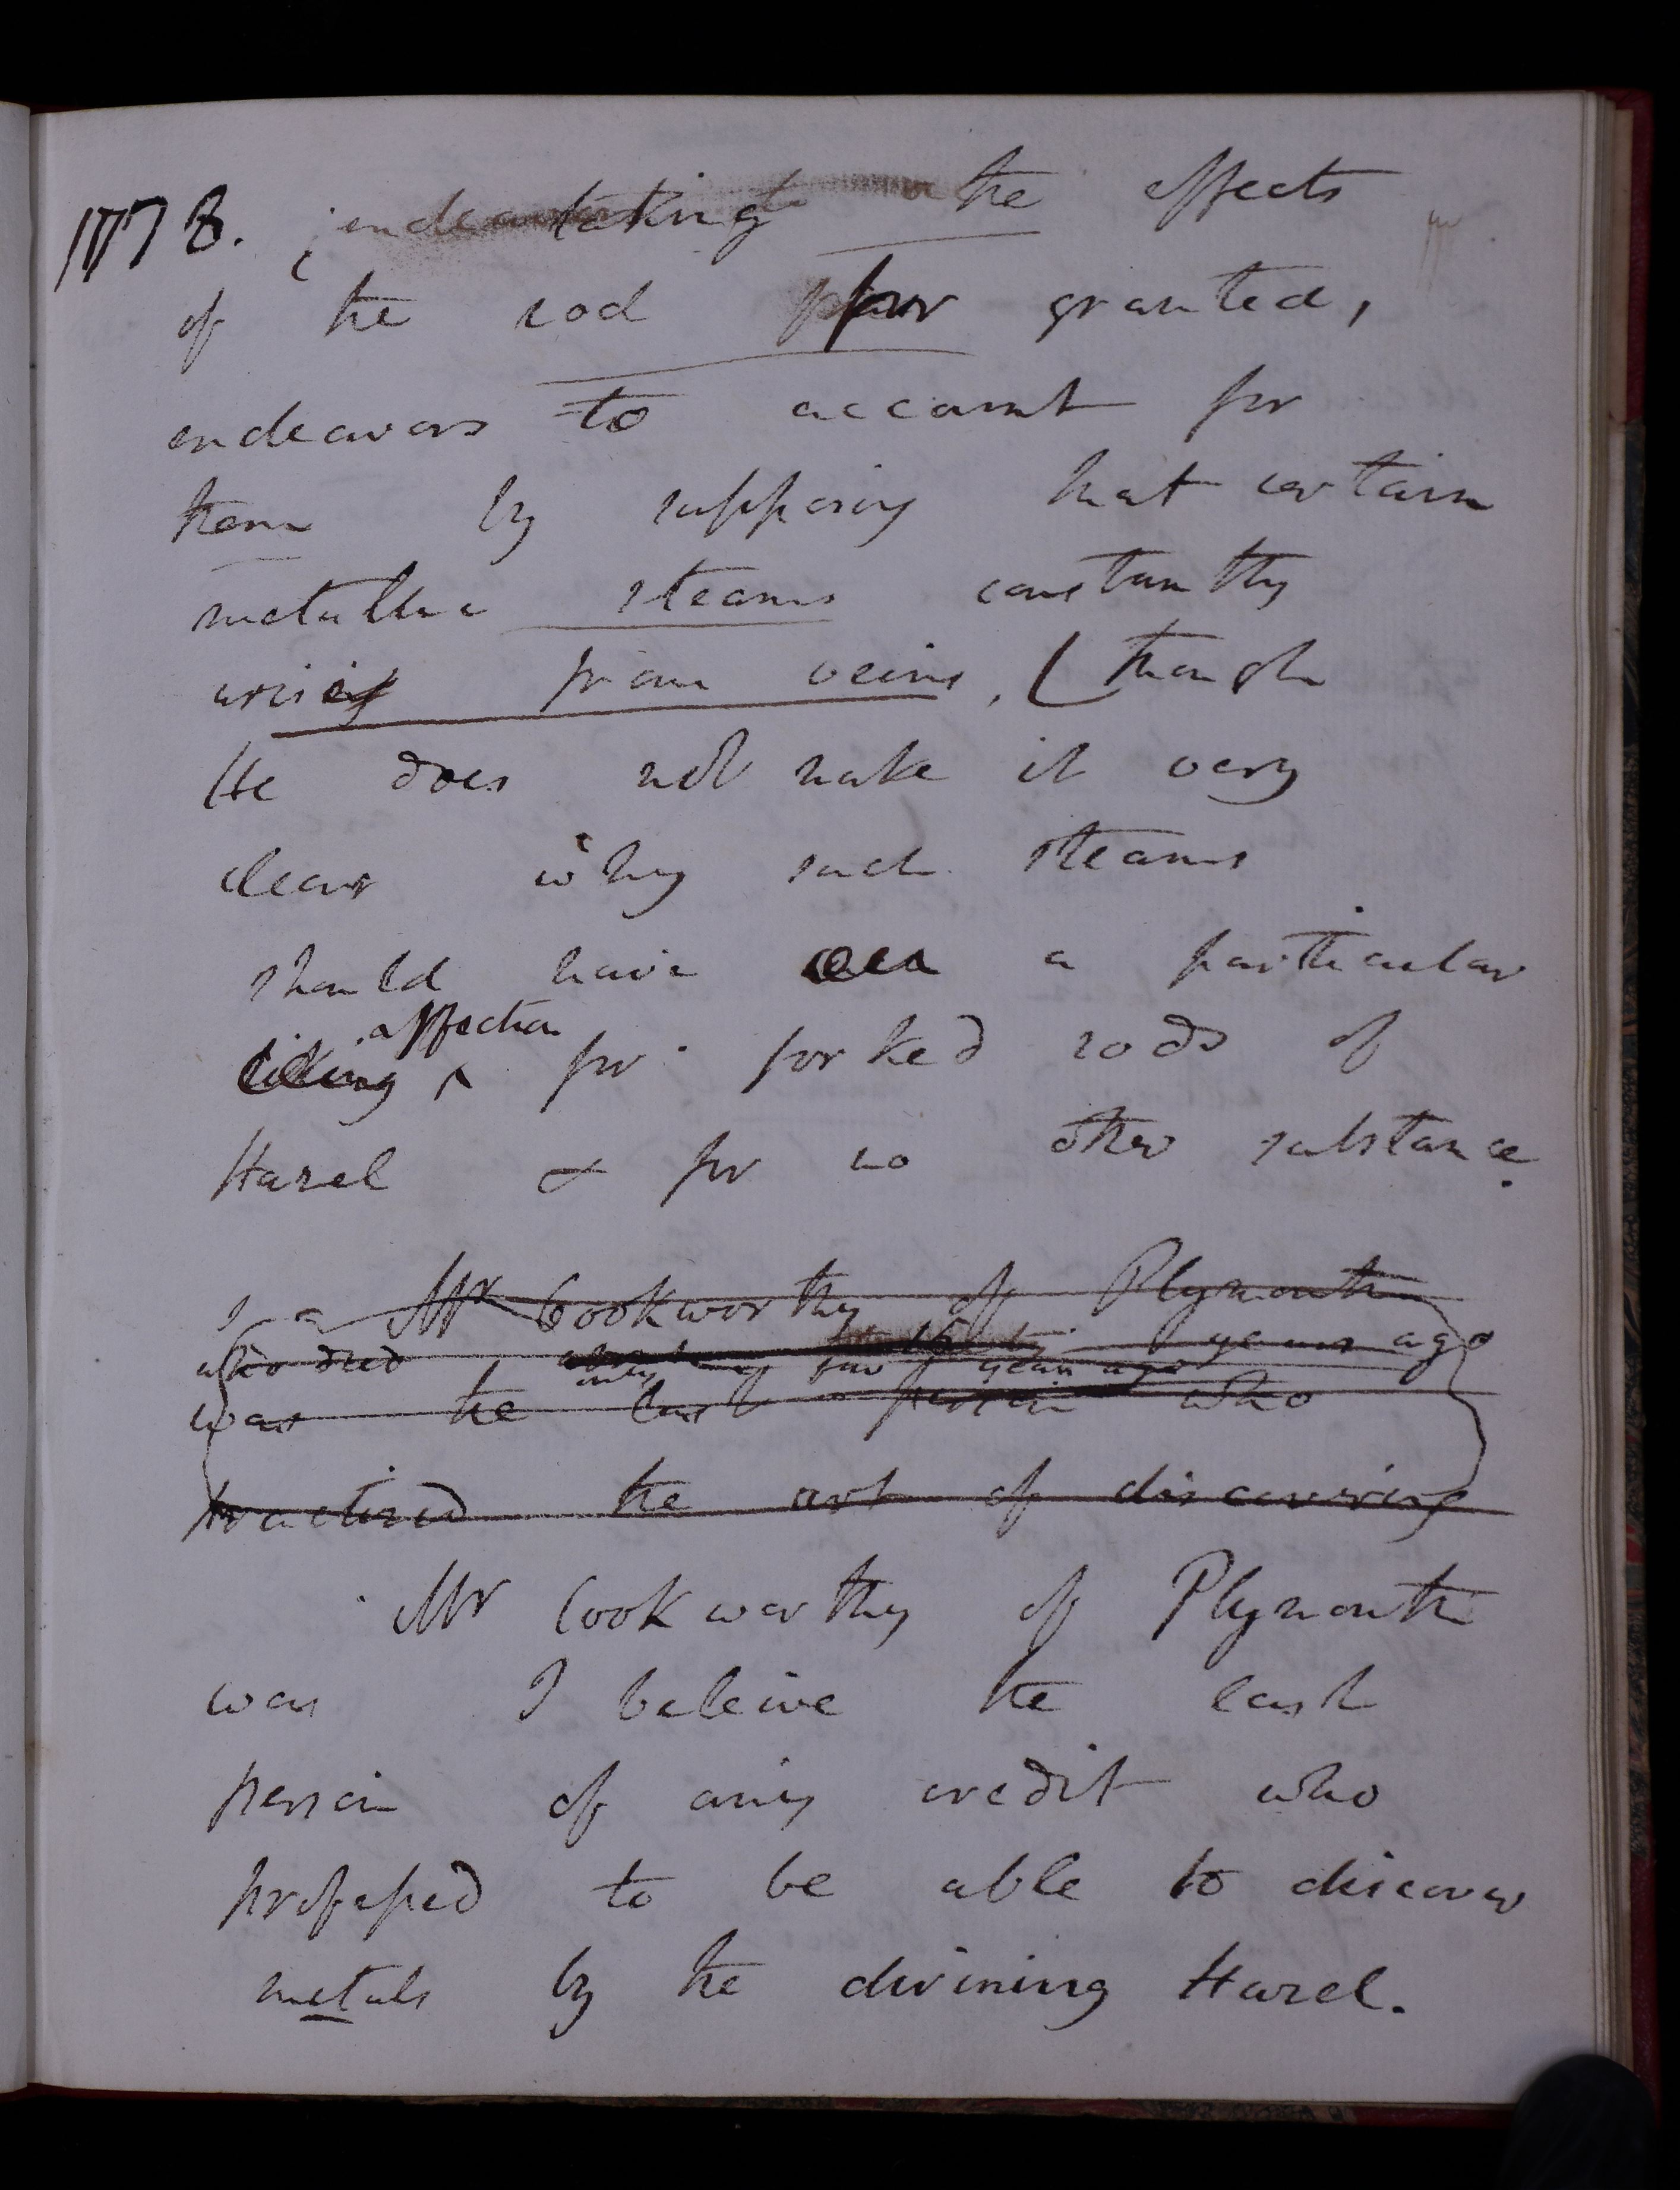 1878. taking the effects
of the rod for granted,
endeavors to account for
them by supposing that certain
metallic steams constantly
arising from veins, (though
He does not make it very
clear why such steams
should have a particular
affection
liking ^ for forked rods of
Hazel & for no other substance.
Mr Cookworthy of Plymouth
years ago
few years ago
was the last person who
practised the art of discovering
Mr Cookworthy of Plymouth
was I beleive the last
person of any credit who
professed to be able to discover
metals by the divining Hazel.